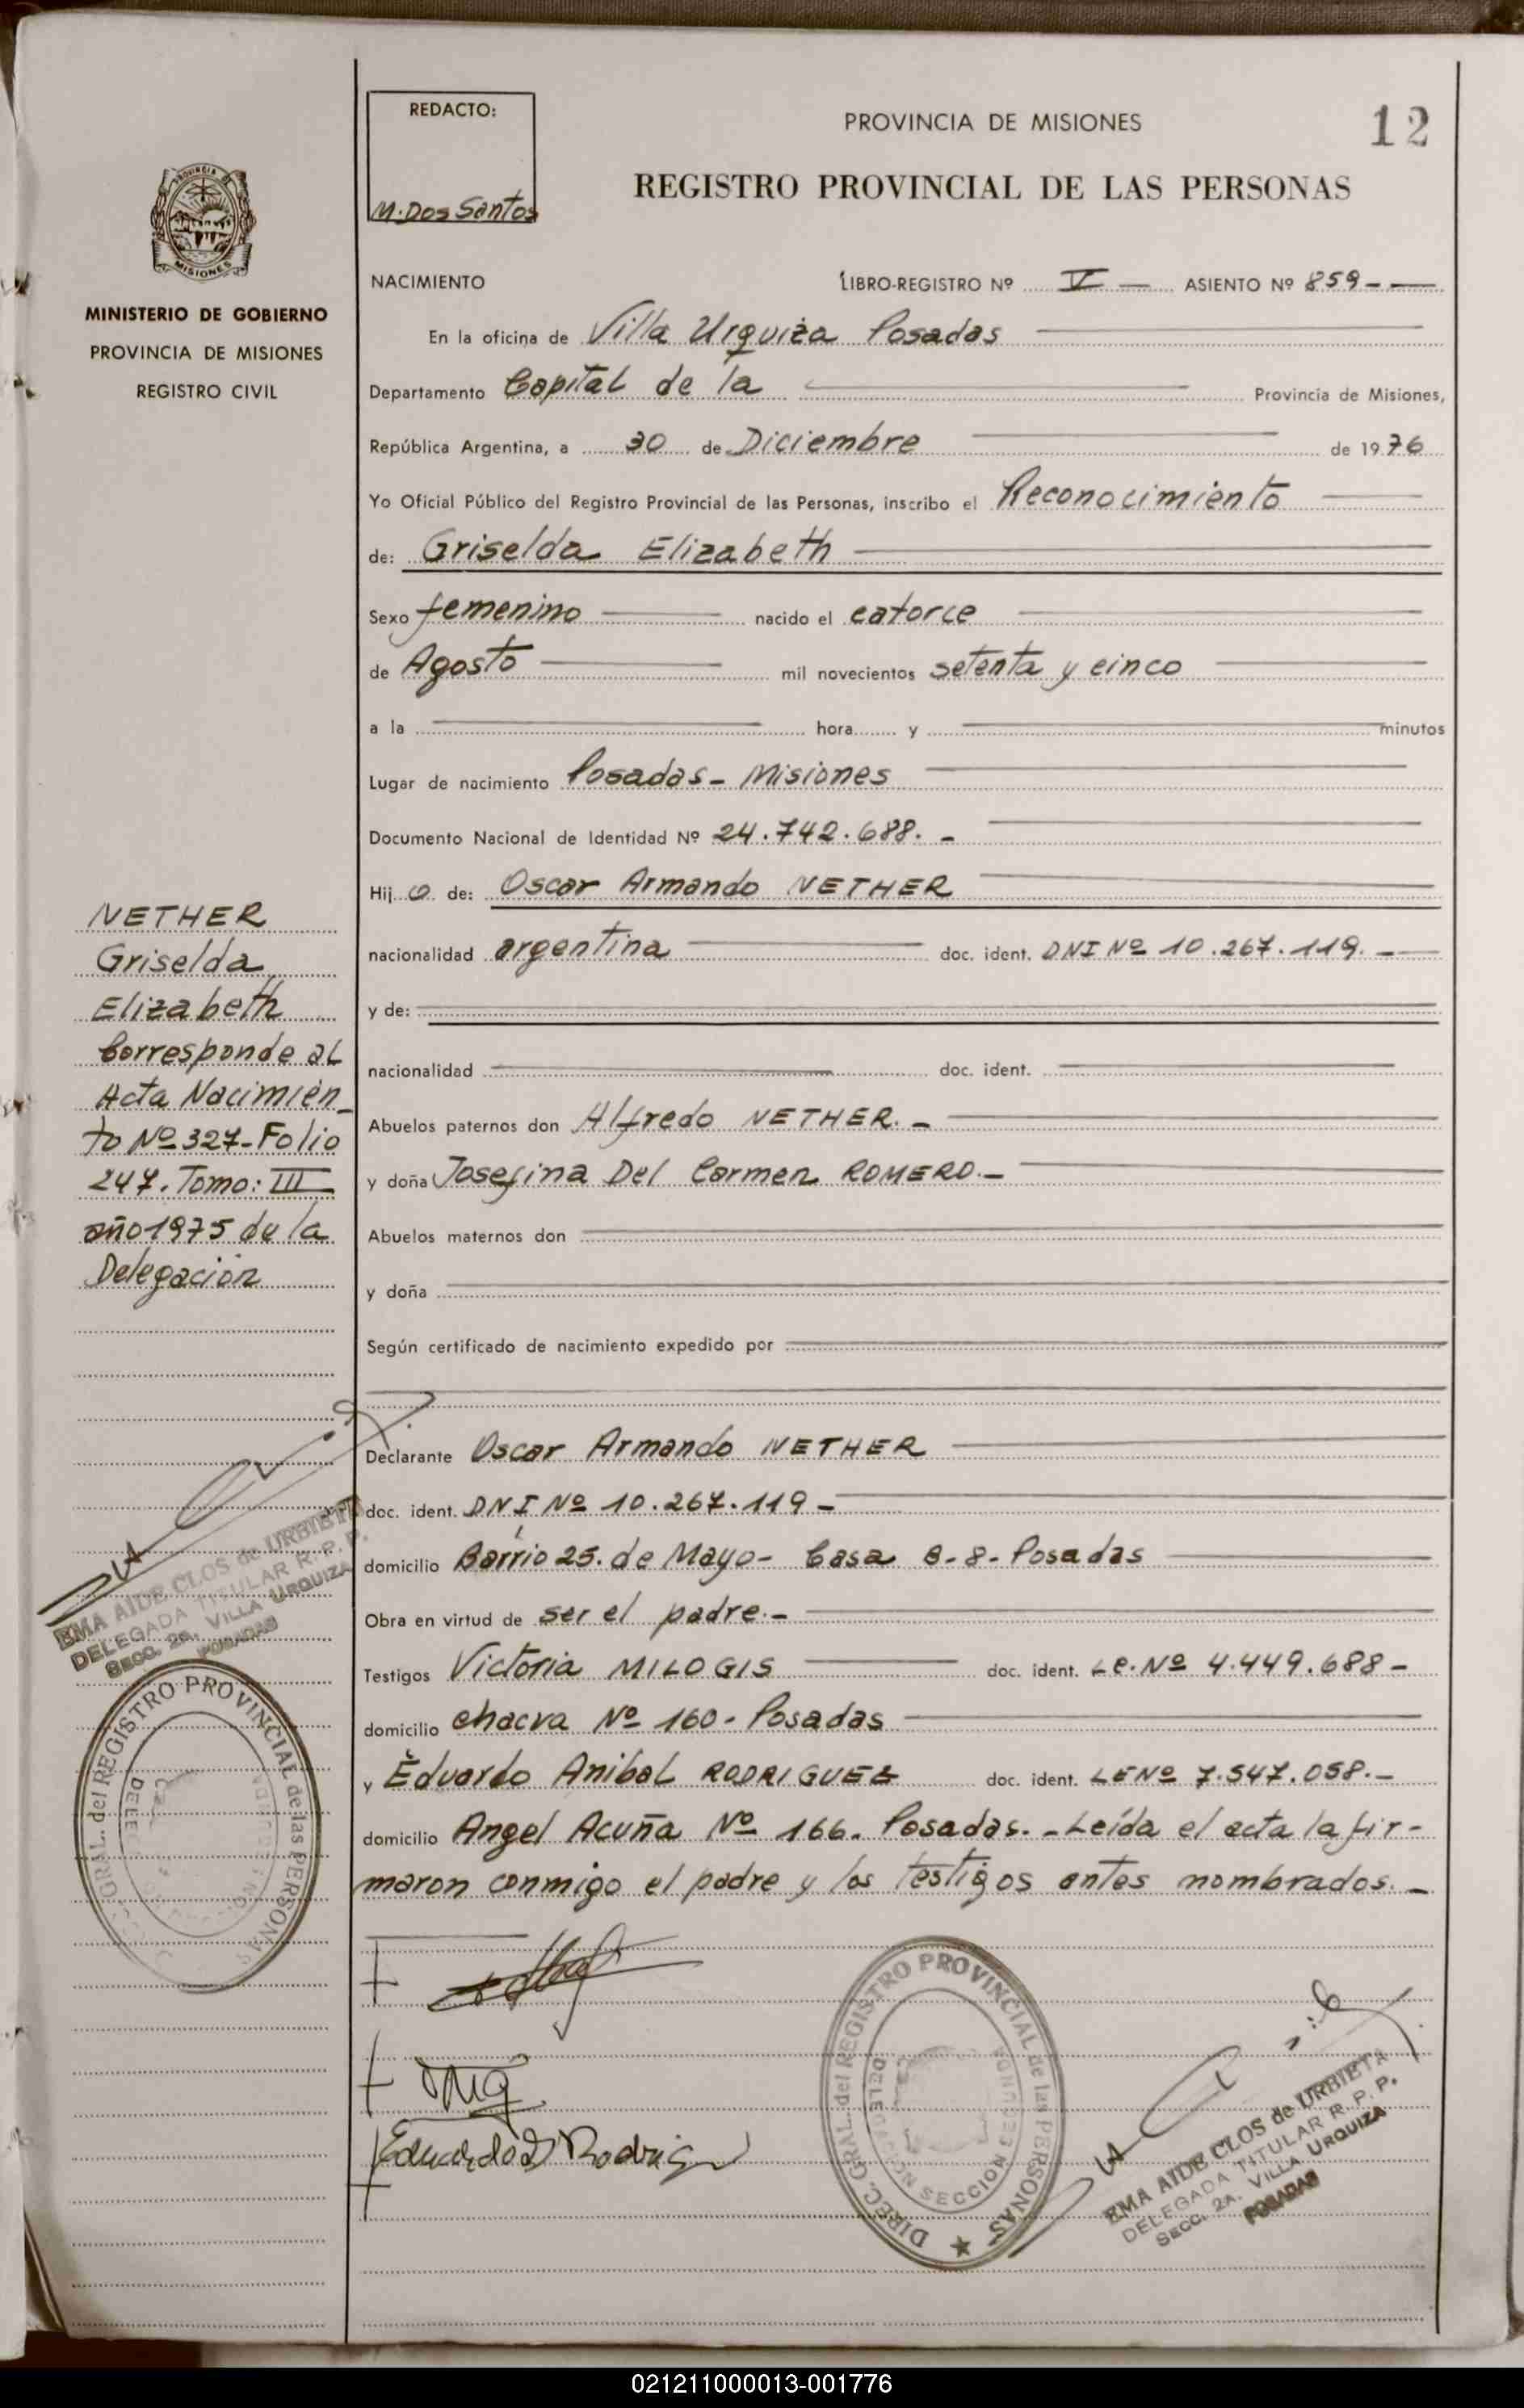 REDACTO:
M. Dos Santos
PROVINCIA DE MISIONES
12
REGISTRO PROVINCIAL DE LAS PERSONAS
MISIONES
MINISTERIO DE GOBIERNO
PROVINCIA DE MISIONES
REGISTRO CIVIL
NACIMIENTO LIBRO-REGISTRO Nº V — ASIENTO Nº 859 - —
En la oficina de Villa Urquiza Posadas
Departamento Capital de la Provincia de Misiones,
República Argentina, a 30 de Diciembre de 1976
Yo Oficial Público del Registro Provincial de las Personas, inscribo el Reconocimiento
de: Griselda Elizabeth
Sexo femenino nacido el catorce
de Agosto mil novecientos setenta y cinco
a la hora y minutos
Lugar de nacimiento Posadas - Misiones
Documento Nacional de Identidad Nº 24.742.688. -
Hij a de: Oscar Armando NETHER
nacionalidad argentina doc. ident. DNI Nº 10.267.119. -
y de:
nacionalidad doc. ident.
Abuelos paternos don Alfredo NETHER. -
y doña Josefina Del Carmen ROMERO. -
Abuelos maternos don
y doña
Según certificado de nacimiento expedido por
Declarante Oscar Armando NETHER
doc. ident. DNI Nº 10.267.119 -
domicilio Barrio 25. de Mayo - Casa 8-8- Posadas
Obra en virtud de ser el padre. -
Testigos Victoria MILOGIS doc. ident. Le. Nº 4.449.688 -
domicilio chacra Nº 160 - Posadas
y Eduardo Anibal RODRIGUEZ doc. ident. LE Nº 7.547.058. -
domicilio Angel Acuña Nº 166. Posadas. - Leída el acta la fir-
maron conmigo el padre y los testigos antes nombrados. -
NETHER
Griselda
Elizabeth
Corresponde al
Acta Nacimien-
to Nº 327 - Folio
247. Tomo: III
año 1975 de la
Delegación
EMA AIDE CLOS de URBIETA
DELEGADA TITULAR R. P. P.
SECC. 2A. VILLA URQUIZA
POSADAS
GRAL. del REGISTRO PROVINCIAL de las PERSONAS
Eduardo A Rodrig
DIREC. GRAL. del REGISTRO PROVINCIAL de las PERSONAS
DELEGACION SECCION SEGUNDA
EMA AIDE CLOS de URBIETA
DELEGADA TITULAR R. P. P.
SECC. 2A. VILLA URQUIZA
POSADAS
021211000013-001776